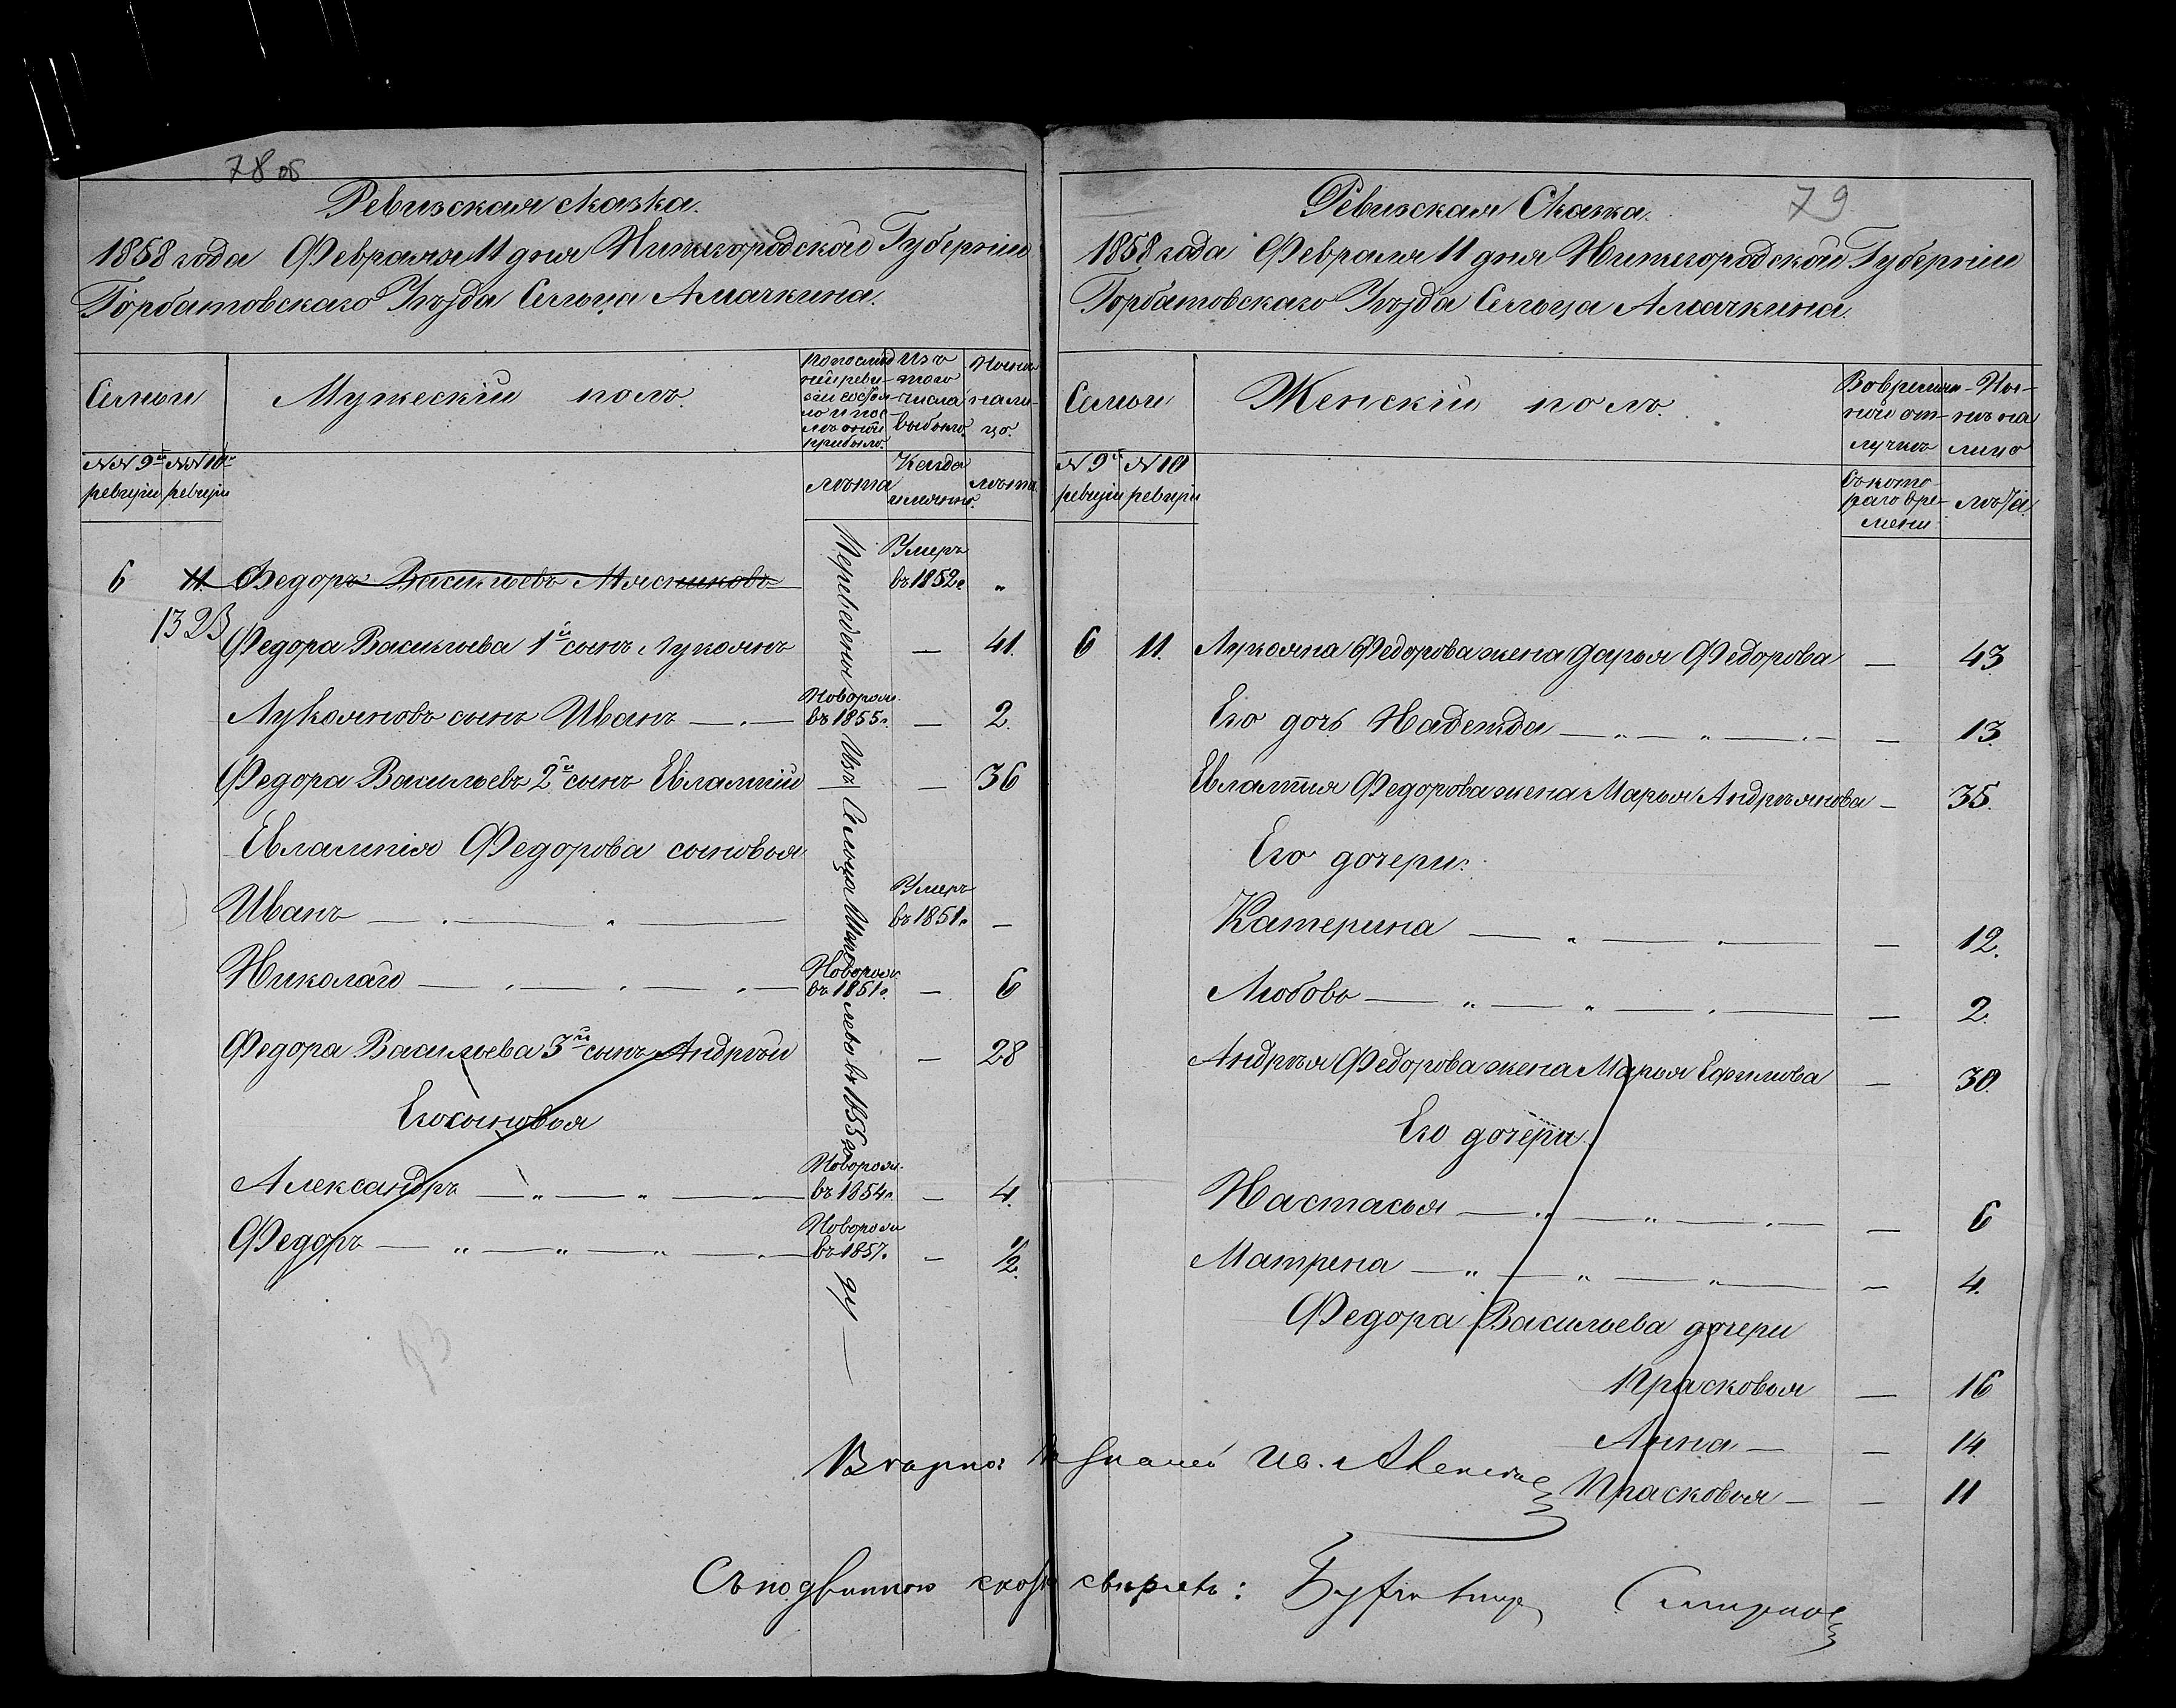 78 об
Ревизская сказка.
1858 года Февраля 11 дня Нижегородской Губернии
Горбатовскаго Уѣзда Сельца Амачкина.
Семьи
Мужескій полъ.
Изъ того числа выбыло.
Нынѣ на лицо.
№№ 9й ревизіи
№№ 10й ревизіи
лѣта
Когда именно.
лѣта.
Переведены Изъ Сельца
въ 1855
6 11. Федоръ Васильевъ Мясниковъ Умеръ въ 1852г. „
132
Федора Васильева 1й сынъ Лукоянъ — 41.
Лукояновъ сынъ Иванъ — Новорож. въ 1855г. — 2.
Федора Васильевъ 2й сынъ Евлампій — — 36
Евлампія Федорова сыновья
Иванъ — Умеръ въ 1851г. —
Николай — Новорож. въ 1851г. — 6
Федора Васильева 3й сынъ Андрей — 28
Его сыновья
Александръ — Новорож. въ 1854г. — 4.
Федоръ — Новорож въ 1857. — 1/2.
79
Ревизская Сказка.
1858 года Февраля 11 дня Нижегородской Губерніи
Горбатовскаго Уѣзда Сельца Амачкина.
Семьи
Женскій полъ.
Во временной отлучкѣ
Нынѣ на лицо
№ 9й ревизіи
№ 10 ревизіи
Съ котораго времени
лѣта.
6 11. Лукояна Федорова жена Дарья Федорова — 43
Его дочь Надежда — — 13.
Евлампія Федорова жена Марья Андреянова — 35.
Его дочери:
Катерина — — 12.
Любовь — — 2.
Андрея Федорова жена Марья Ефимова — 30.
Его дочери.
Настасья — — 6
Матрена — — 4.
Федора Васильева дочери
Прасковья — 16
Анна — — 14.
Прасковья — — 11
Съ подлинною сверялъ: Смирнов